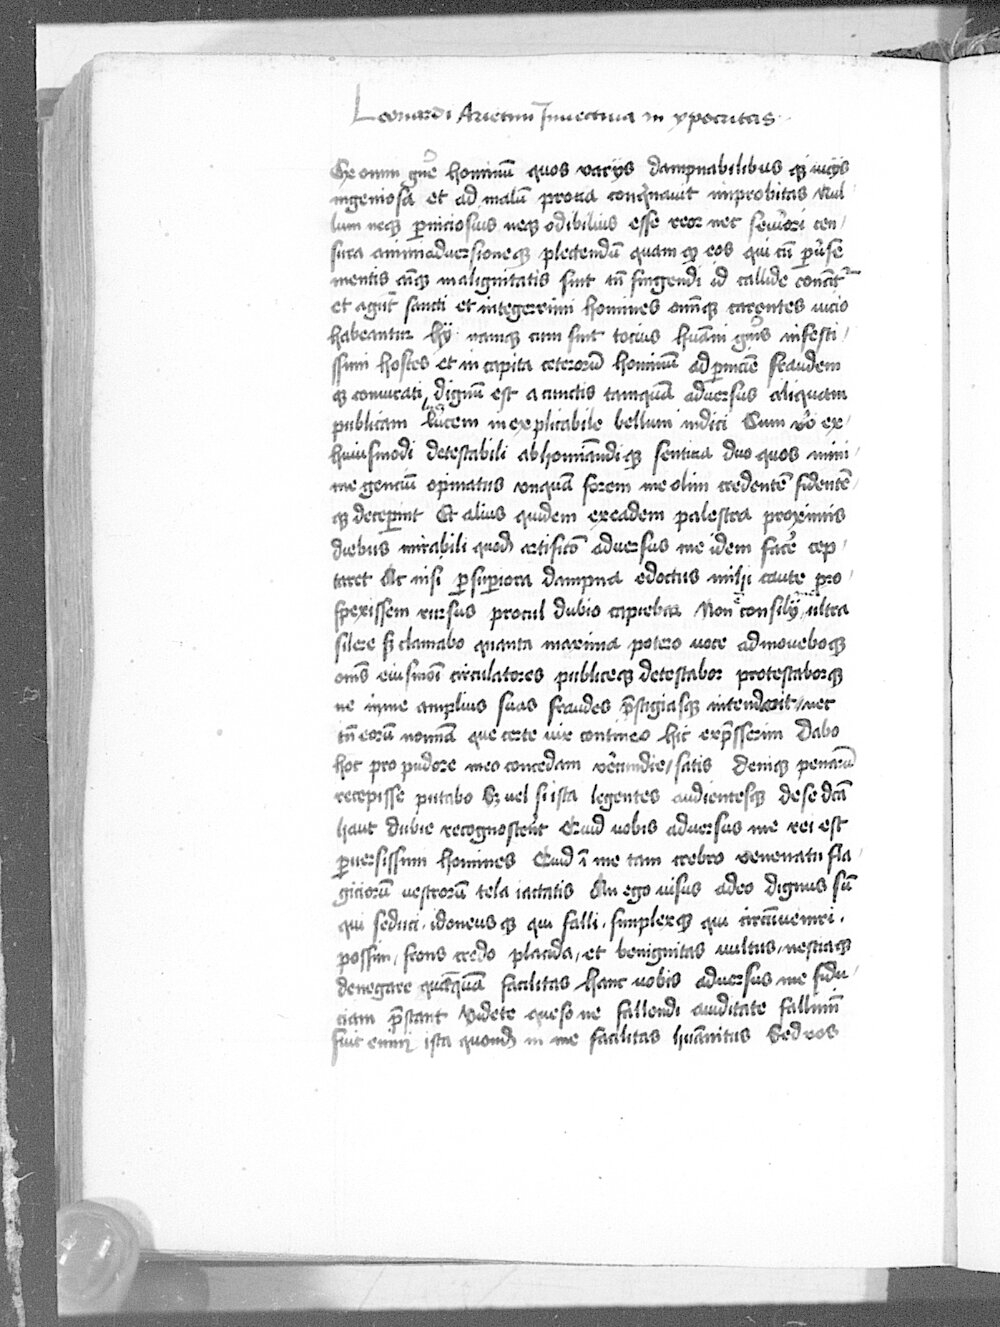 Leonardi Aretini Inuectiua in ypocritas
Ex omni gñe hominũ quos varijs dampnabilibus qꝫ uicijs
ingeniosa et ad malũ prona conq̃nauit improbitas Nul
lum neqꝫ ꝑniciosius neqꝫ odibilius esse reor nec seũiori cen/
sura animaduersioneqꝫ plectendũ quam qꝫ eos qui cũ ꝑũse
mentis cũqꝫ malignitatis sint tñ fingendi id callide conãt̃
et agũt sancti et integerrimi homines omĩqꝫ carentes uicio
habeantur hij namqꝫ cum sint tocius huãni gñis infesti/
ssimi hostes et in capita ceterorũ hominũ ad ꝑniciẽ fraudem
qꝫ coniurati, dignũ est a cunctis tamquã aduersus aliquam
publicam lucem inexplicabile bellum indici Cum ṽo ex/
huiusmodi detestabili abhominãdi qꝫ sentina duo quos mini/
me gencium opinatus vnquã forem me olim credentẽ fidentẽ/
qꝫ deceperint Et alius quidem ex eadem palestra proximis
diebus mirabili quodã artificio aduersus me idem facẽ cep/
taret Ac nisi ꝑ suꝑiora dampna edoctus mihi caute pro/
spexissem rursus procul dubio capiebar Non consilij ultra
silere sꝫ clamabo quanta maxima potero uoce admoueboqꝫ
oms eiusmõi circulatores publiceqꝫ detestabor protestaborqꝫ
ne in me amplius suas fraudes p̃stigiasqꝫ intenderit/ nec
tñ eorũ nomina que certe uix contineo hic exp̃sserim Dabo
hoc pro pudore meo concedam vẽcundie/ satis deniqꝫ penarũ
recepisse putabo Sꝫ vel si ista legentes audientesqꝫ de se dcã
haut dubie recognoscent Quid uobis aduersus me rei est
ꝑuersissimi homines Quid ĩ me tam crebro venenata fla/
giciorũ vestrorũ tela iactatis An ego uisus adeo dignus sũ
qui seduci. idoneus qꝫ qui falli, simplexqꝫ qui circũueniri.
possim/ frons credo placida/ et benignitas uultus/ nesciaqꝫ
denegare quicquã facilitas hanc uobis aduersus me fidu/
ciam p̃stant Videte queso ne fallendi auiditate fallimĩ
fuit enim ista quondã in me facilitas huãnitus Sed vos